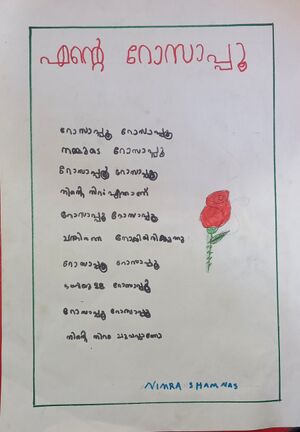 എന്റെ റോസാപ്പൂ
റോസാപ്പൂ റോസാപ്പൂ
നമ്മുടെ റോസാപ്പൂ
റോസാപ്പൂ റോസാപ്പൂ
നിന്റെ നിറം എന്താണ്
റോസാപ്പൂ റോസാപ്പൂ
റോസാപ്പൂ റോസാപ്പൂ
റോസാപ്പൂ
റോസാപ്പൂ റോസാപ്പൂ
നിന്റെ നിറം ചുവപ്പാണോ
NIMRA SHAMNAS